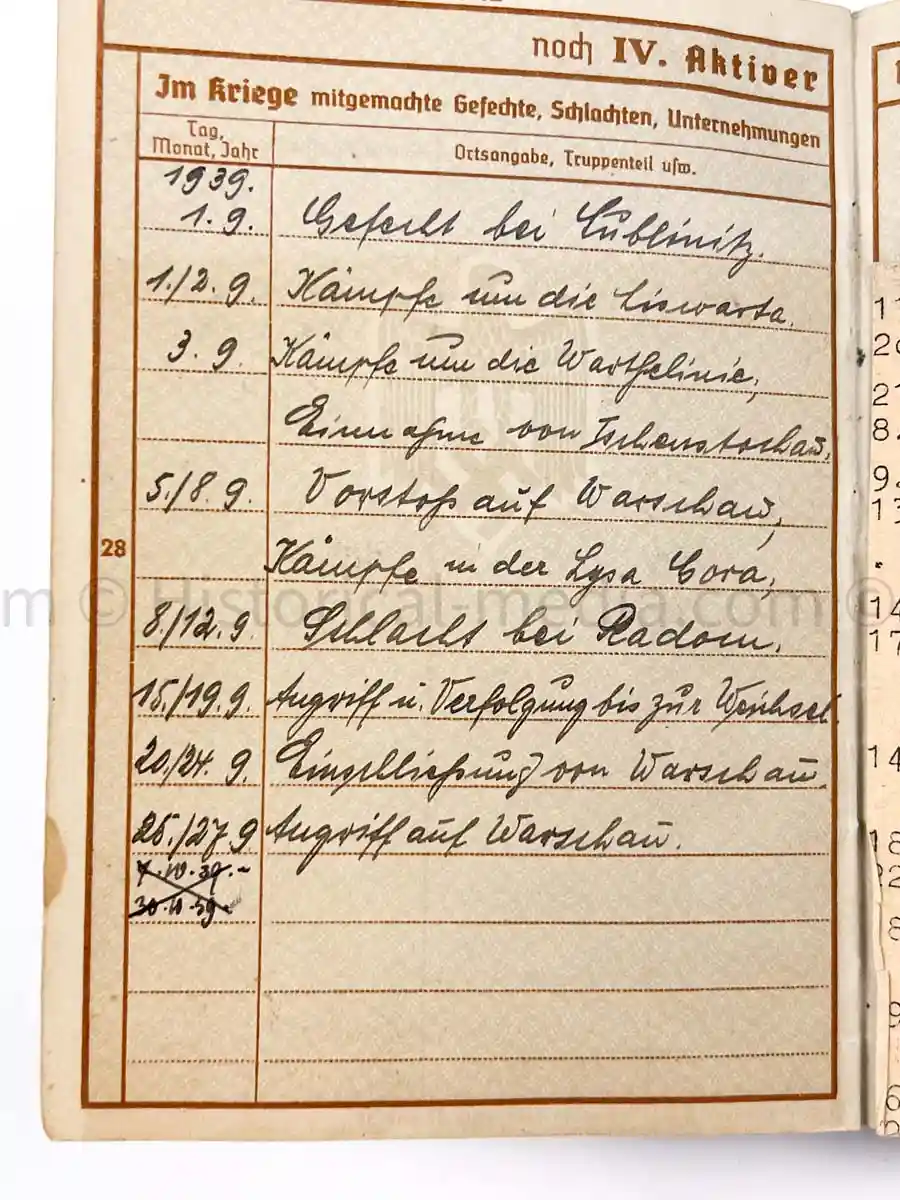 noch IV. Aktiver
Im Kriege mitgemachte Gefechte, Schlachten, Unternehmungen
Tag, Monat, Jahr
Ortsangabe, Truppenteil usw.
1939.
1. 9. Gefecht bei Lublinitz.
1./2. 9. Kämpfe um die Liswarta.
3. 9. Kämpfe um die Warthelinie,
Einnahme von Tschenstochau.
5./8. 9. Vorstoß auf Warschau,
28
Kämpfe in der Lysa Gora,
m © Historical-media.com ©
8./12. 9. Schlacht bei Radom.
15./19. 9. Angriff u. Verfolgung bis zur Weichsel.
20./24. 9. Einschließung von Warschau.
25./27. 9 Angriff auf Warschau.
7.10.39.-
30.10.39.